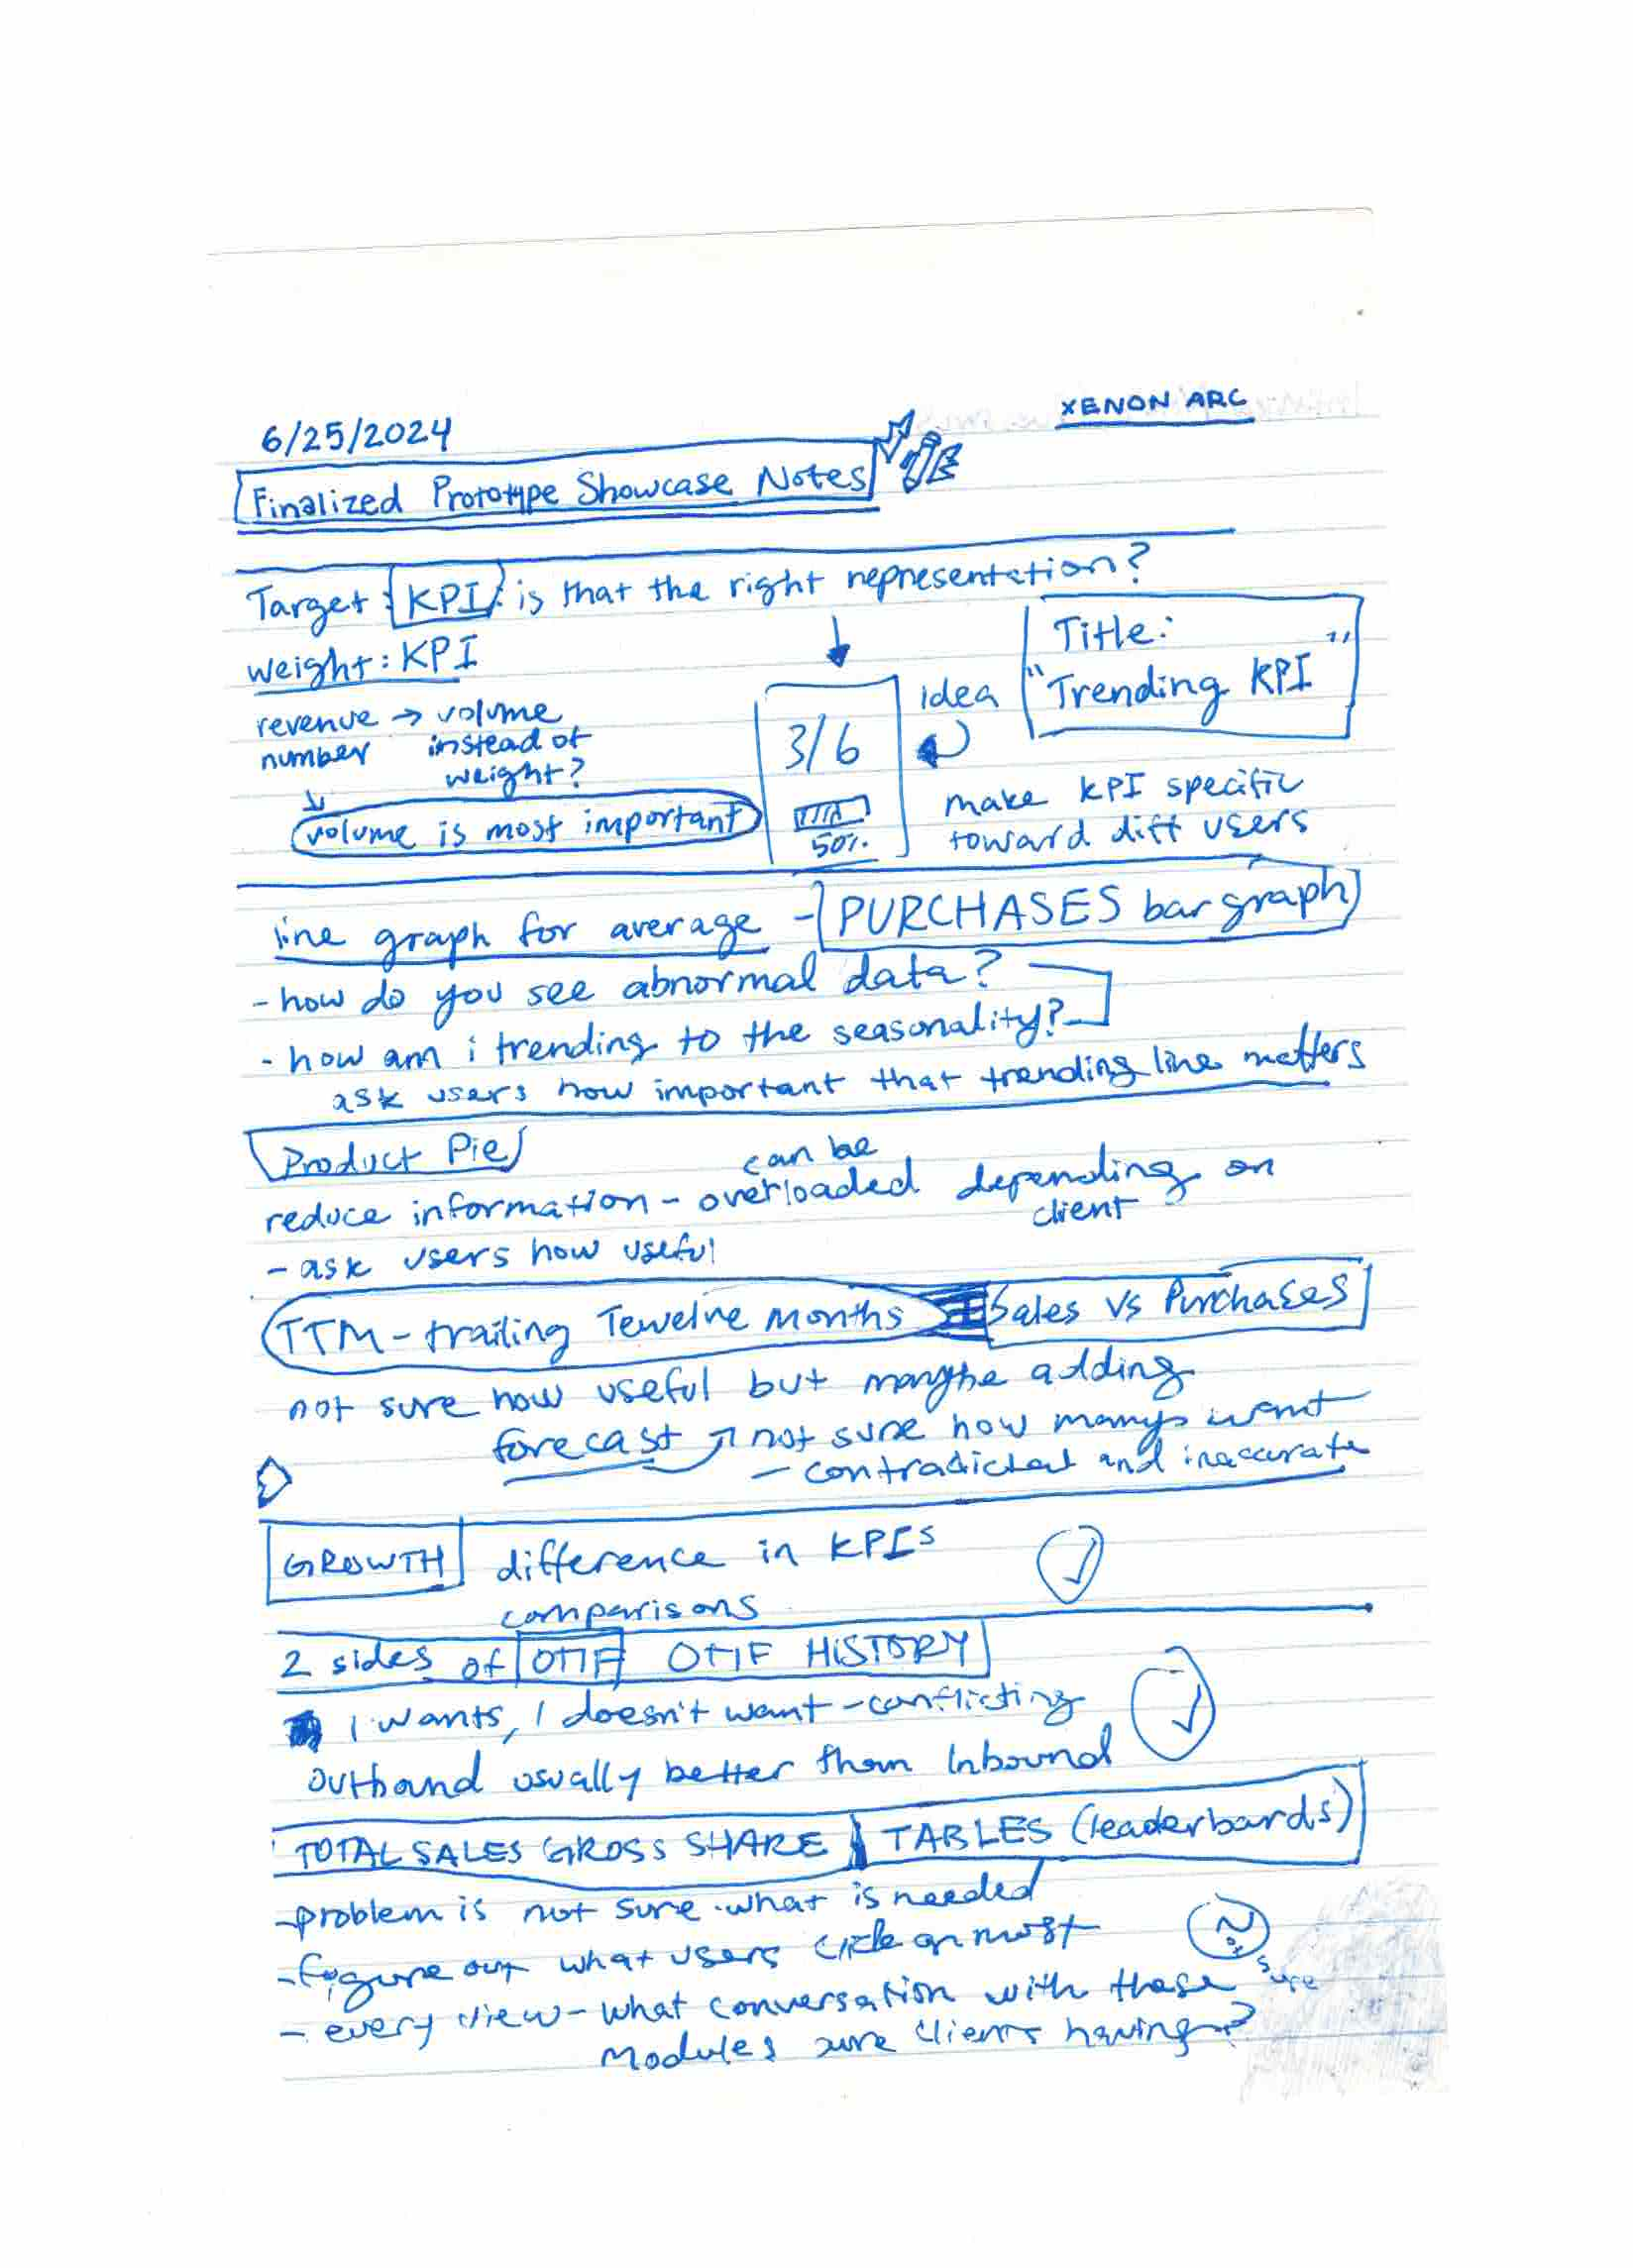 XENON ARC
6/25/2024
Finalized Prototype Showcase Notes
Target KPI: is that the right representation?
weight: KPI
revenue → volume
number instead of
weight?
volume is most important
3/6
50%
idea
Title:
"Trending KPI"
make KPI specific
toward diff users
line graph for average - PURCHASES bar graph
- how do you see abnormal data?
- how am i trending to the seasonality?
ask users how important that trending line matters
Product Pie
can be
reduce information - overloaded depending on
client
- ask users how useful
TTM - trailing Tewelve Months Sales vs Purchases
not sure how useful but maybe adding
forecast not sure how many want
- contradicted and inaccurate
GROWTH difference in KPIs
comparisons
2 sides of OTIF OTIF HISTORY
1 wants, 1 doesn't want - conflicting
outbound usually better than Inbound
TOTAL SALES GROSS SHARE TABLES (leaderboards)
- problem is not sure what is needed
- figure out what users click on most
not sure
- every view - what conversation with those
modules are clients having?